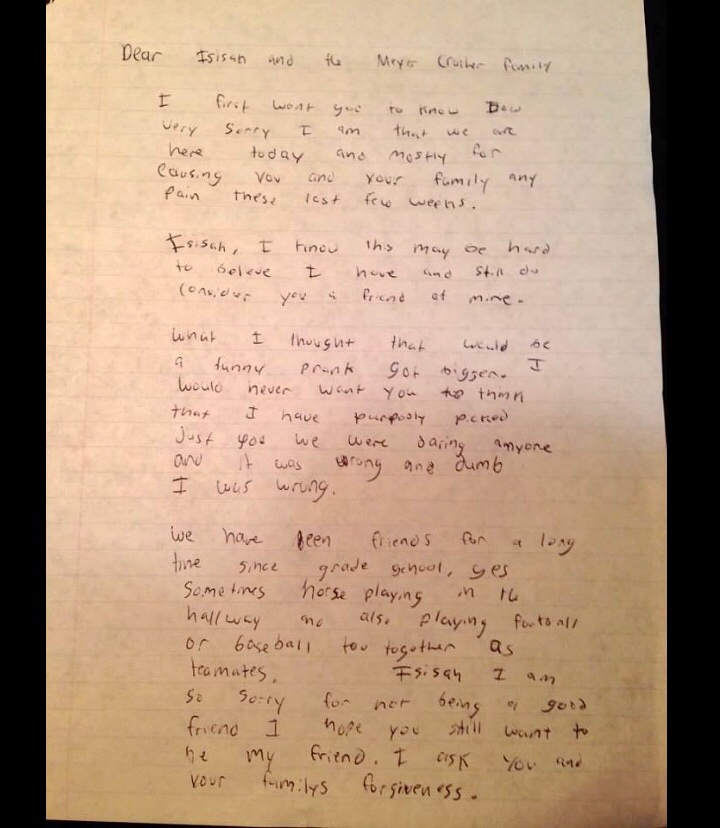 Dear Isisah and the Meyer Crosher family
I first want you to know How
very sorry I am that we are
here today and mostly for
causing you and your family any
pain these last few weens.
Isisah, I know this may be hard
to beleve I have and still do
consider you a friend of mine.
what I thought that would be
a funny prank got bigger. I
would never want you to think
that I have purposly picked
just you we were daring anyone
and it was wrong and dumb
I was wrong.
we have been friends for a long
time since grade school, yes
sometimes horse playing in the
hallway and also playing football
or baseball too together as
teamates. Isisah I am
so sorry for not being a good
friend I hope you still want to
be my friend. I ask you and
your familys forgiveness.